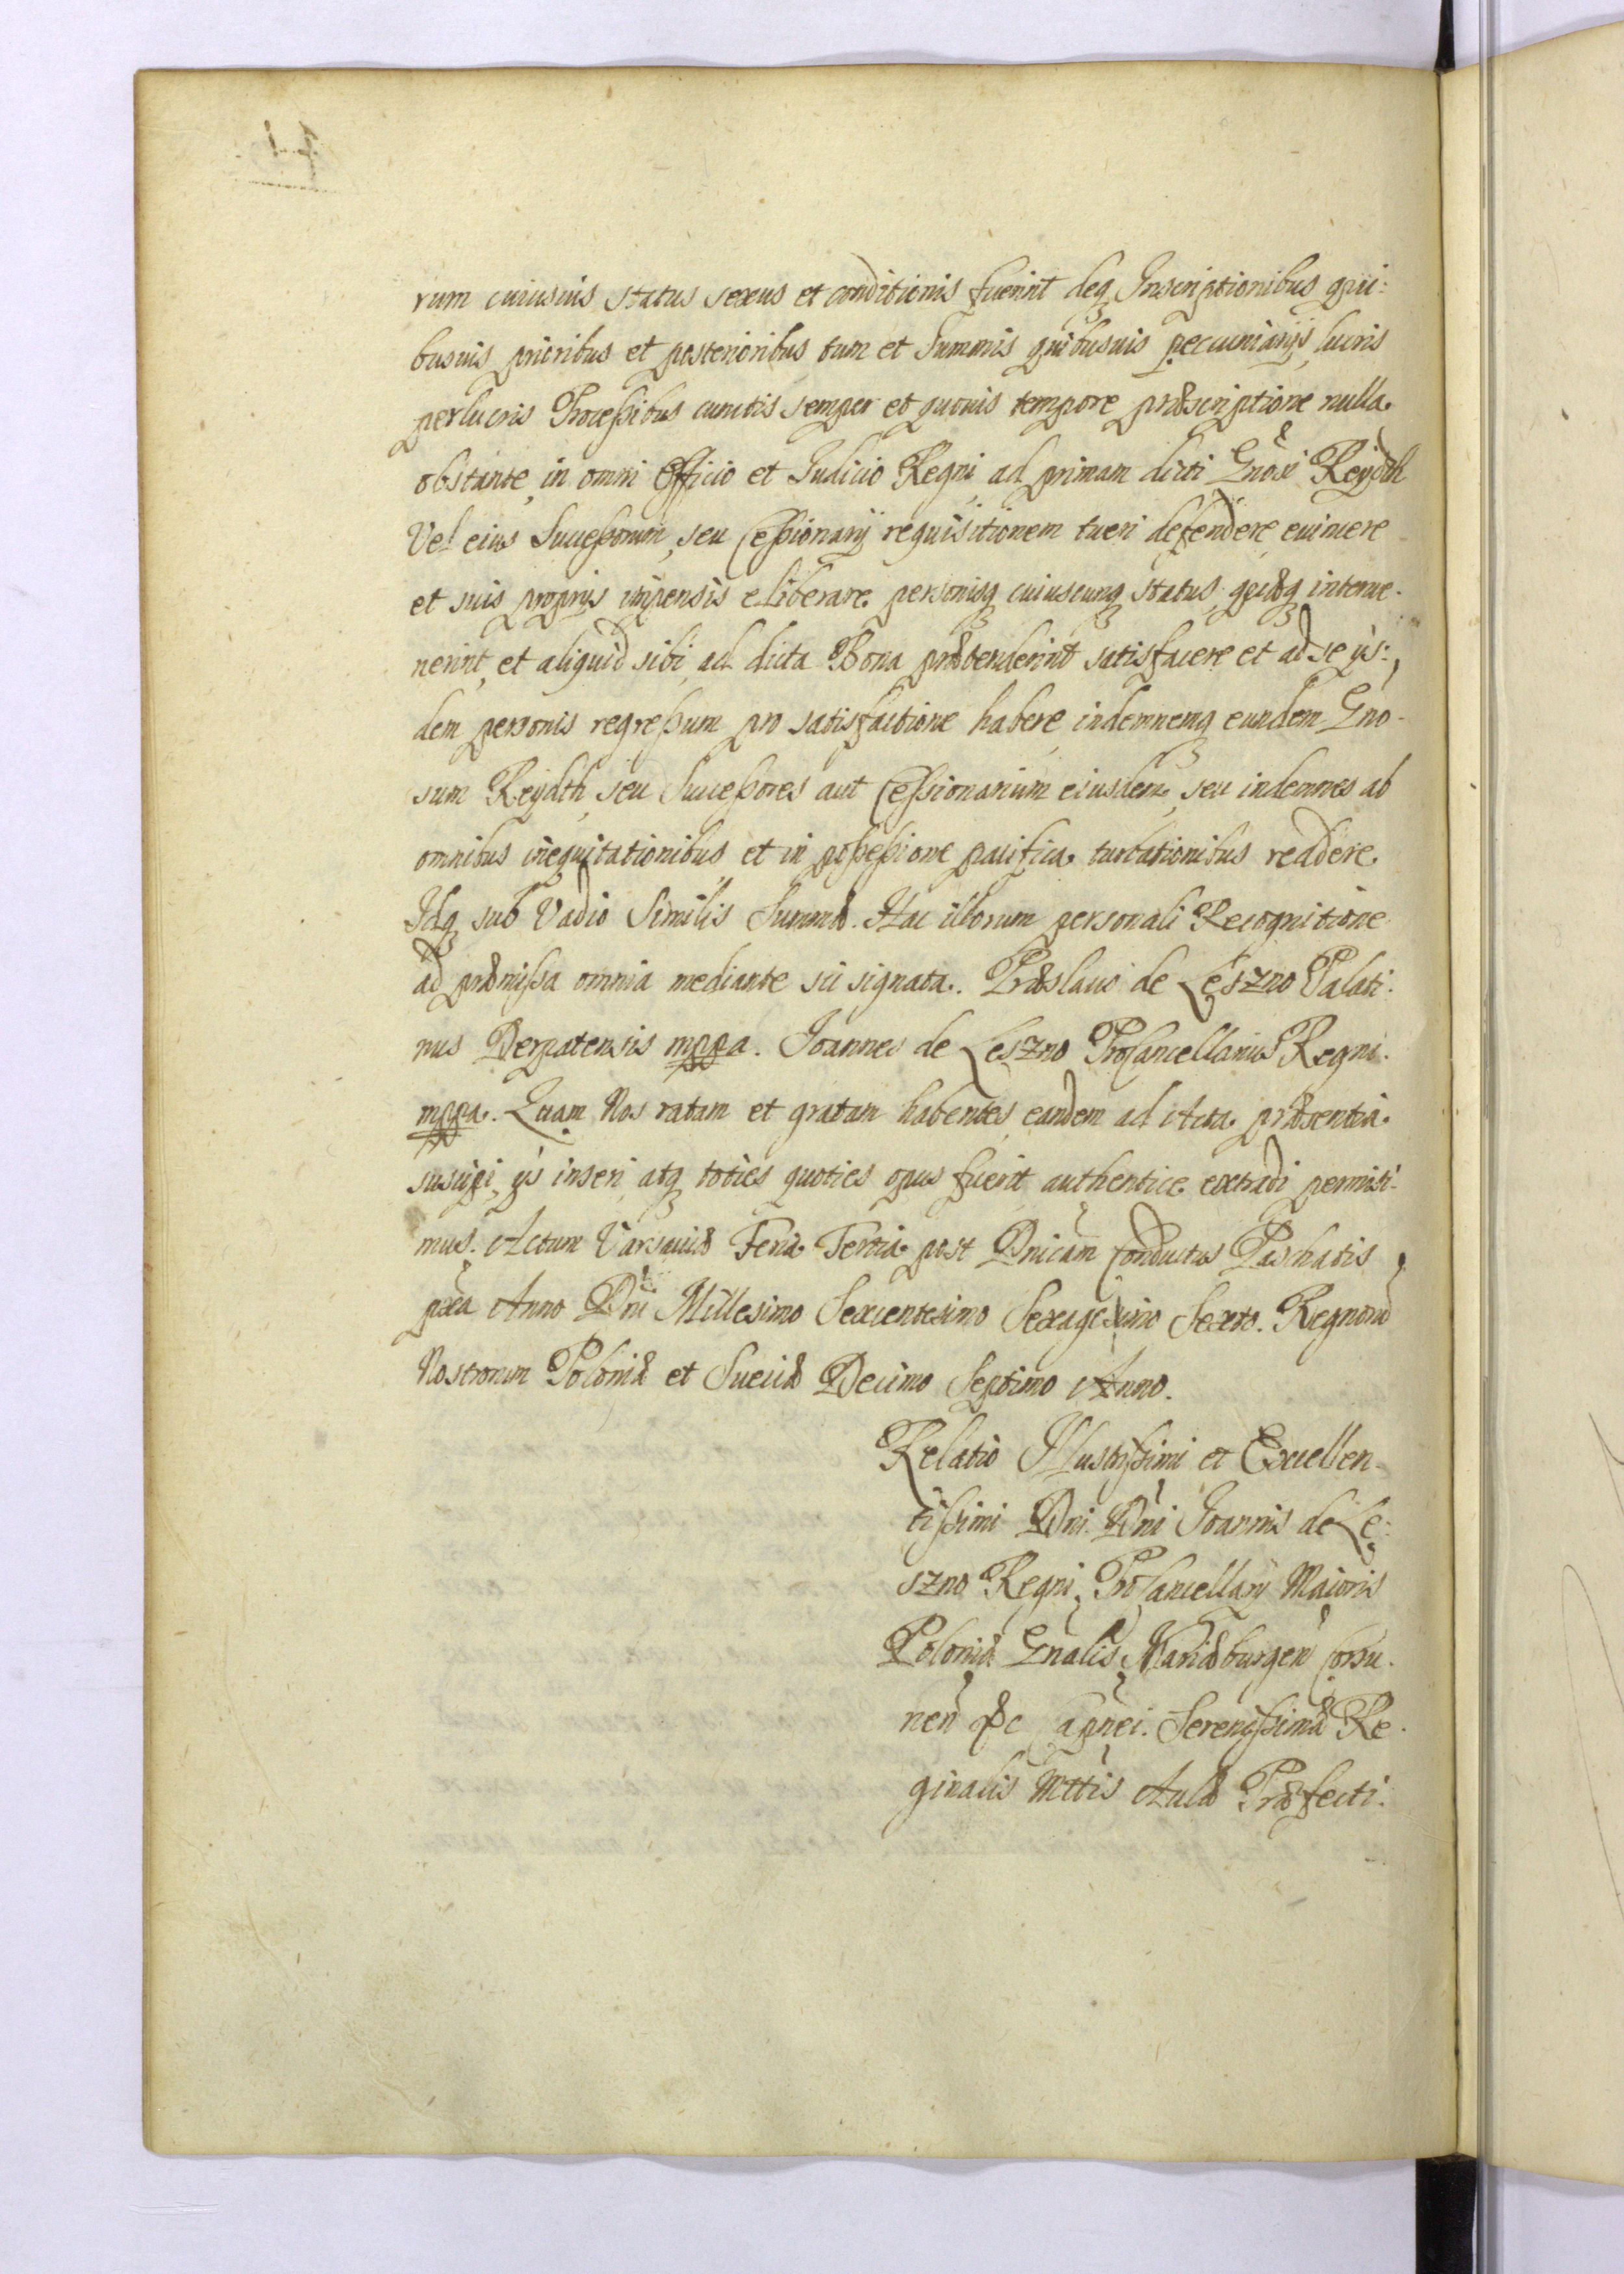 rum cuiusuis status sexus et conditionis fuerint deq Inscriptionibus qui:
busuis prioribus et posterioribus tum et Summis quibusuis pecuniarijs, lucris
perlucris Processibus cunctis semper et quouis tempore præscriptione nulla
obstante, in omni Officio et Iudicio Regni, ad primam dicti Gnosi Reydth
Vel eius Successorum, seu Cessionarij requisitionem tueri defendere, euincere
et suis proprijs impensis eliberare, personisq cuiuscunq status, quæq interue-
nerint, et aliquid sibi, ad dicta Bona prætenderint satisfacere et ad se ijs:
dem personis regressum pro satisfactione habere, indemnemq eundem Gno-
sum Reydth, seu Successores aut Cessionarium eiusdem, seu indemnes ab
omnibus inequitationibus, et in possessione pacifica turbationibus reddere.
Idq sub Vadio Similis Summæ. Hac illorum personali Recognitione
ad præmissa omnia mediante sic signata. Præslaus de Leszno Palati:
nus Derpatensis mppa. Joannes de Leszno ProCancellarius Regni.
mppa. Quam Nos ratam et gratam habentes, eandem ad Acta præsentia
suscipi, ijs inseri, atq toties quoties opus fuerit authentice extradi permisi-
mus. Actum Varsauiæ Feria Tertia post Dnicam Conductus Paschatis
pxa Anno Dni Millesimo Sexcentesimo Sexagesimo Sexto. Regnorũ
Nostrorum Poloniæ et Sueciæ Decimo Septimo Anno.
Relatio Illustrissimi et Excellen-
tissimi Dni Dni Joannis de Le:
szno Regni, ProCancellarij Maioris
Poloniæ Gnalis, Mariæburgen Corsu-
nen &c Capnei. Serenissimæ Re-
ginalis Mttis Aulæ Præfecti.